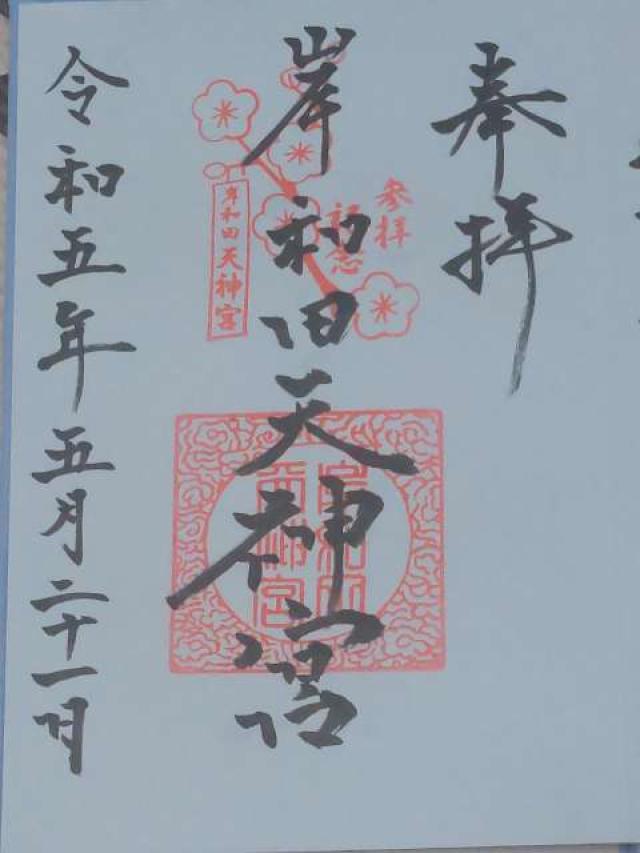 奉拝
参拝
記念
岸和田天神宮
岸和田天神宮
令和五年五月二十一日